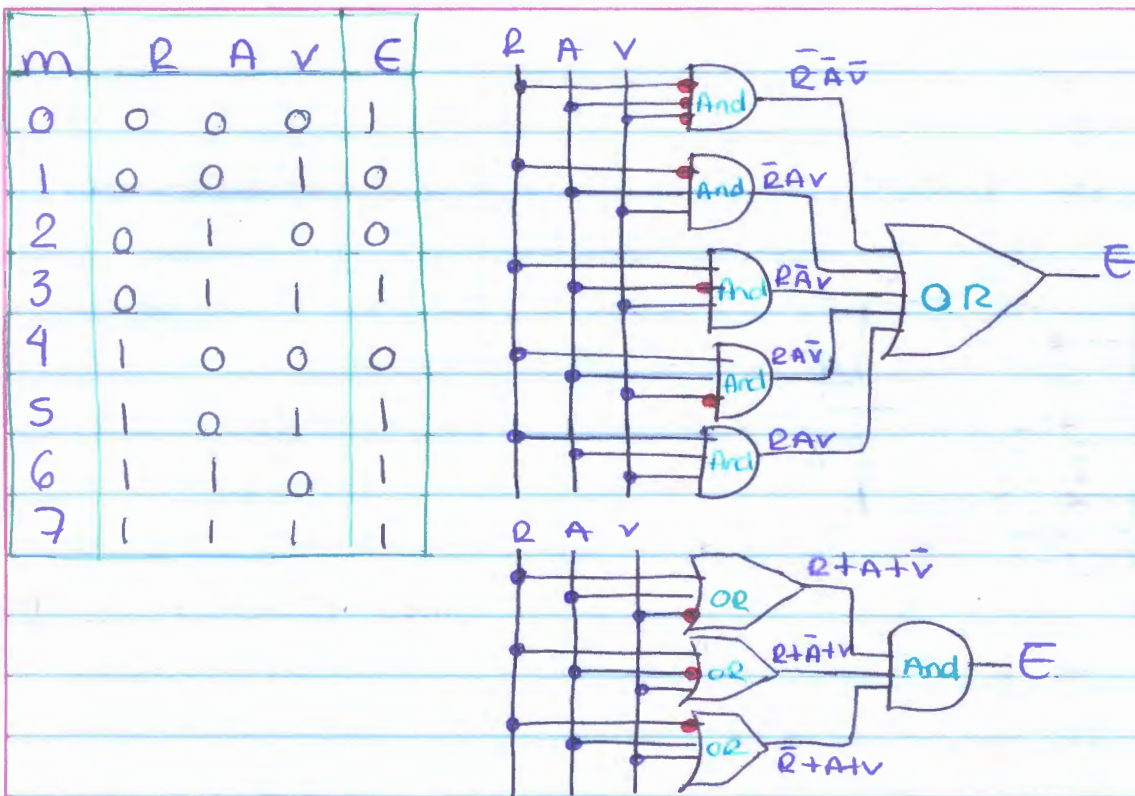 m R A V E
0 0 0 0 1
1 0 0 1 0
2 0 1 0 0
3 0 1 1 1
4 1 0 0 0
5 1 0 1 1
6 1 1 0 1
7 1 1 1 1
R A V
And R̅A̅V̅
And R̅AV
And RA̅V
And RAV̅
And RAV
OR E
R A V
OR R+A+V̅
OR R+A̅+V
OR R̅+A+V
And E